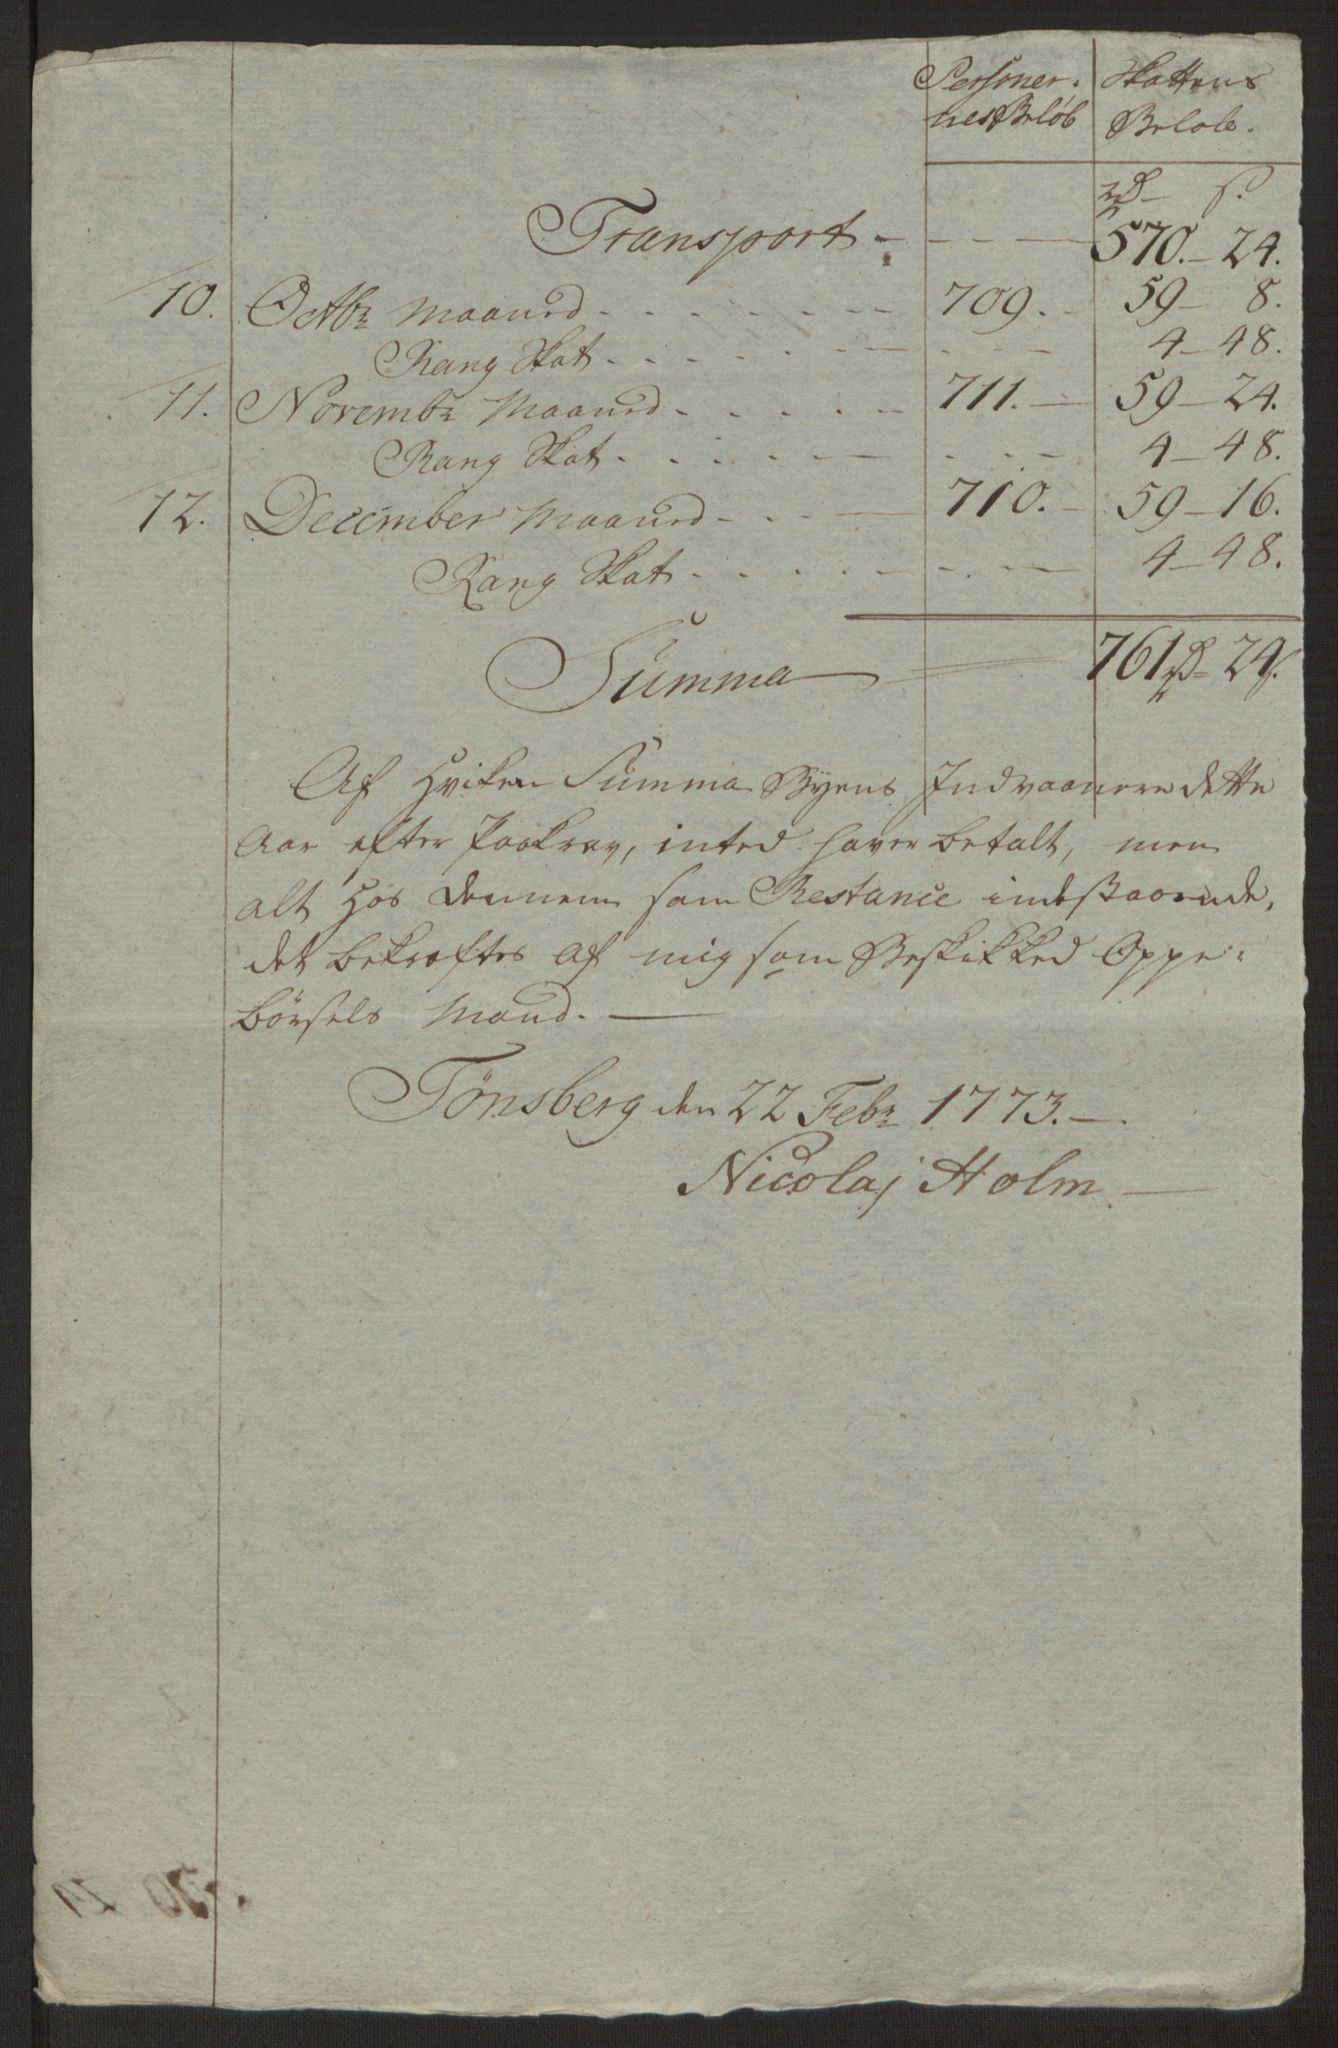 Personer: Skattens
nes Beløb Beløb.
rd s.
Transport - 570. - 24.
10. Octbr Maaned 709. 59 - 8.
Rang Skat. 4 - 48.
11. Novembr Maaned 711. 59 - 24.
Rang Skat. 4 - 48.
12. December Maaned 710. 59 - 16.
Rang Skat. 4 - 48.
Summa 761 rd - 24 s.
Af Hvilken Summa Byens Indvaanere dette
Aar efter Paakrav, inted haver betalt, men
alt Hos dennem som Restance indestaaende,
det bekræftes af mig som Beskikked Oppe:
börsels Mand.
Tönsberg den 22 Febr 1773.
Nicolaj Holm